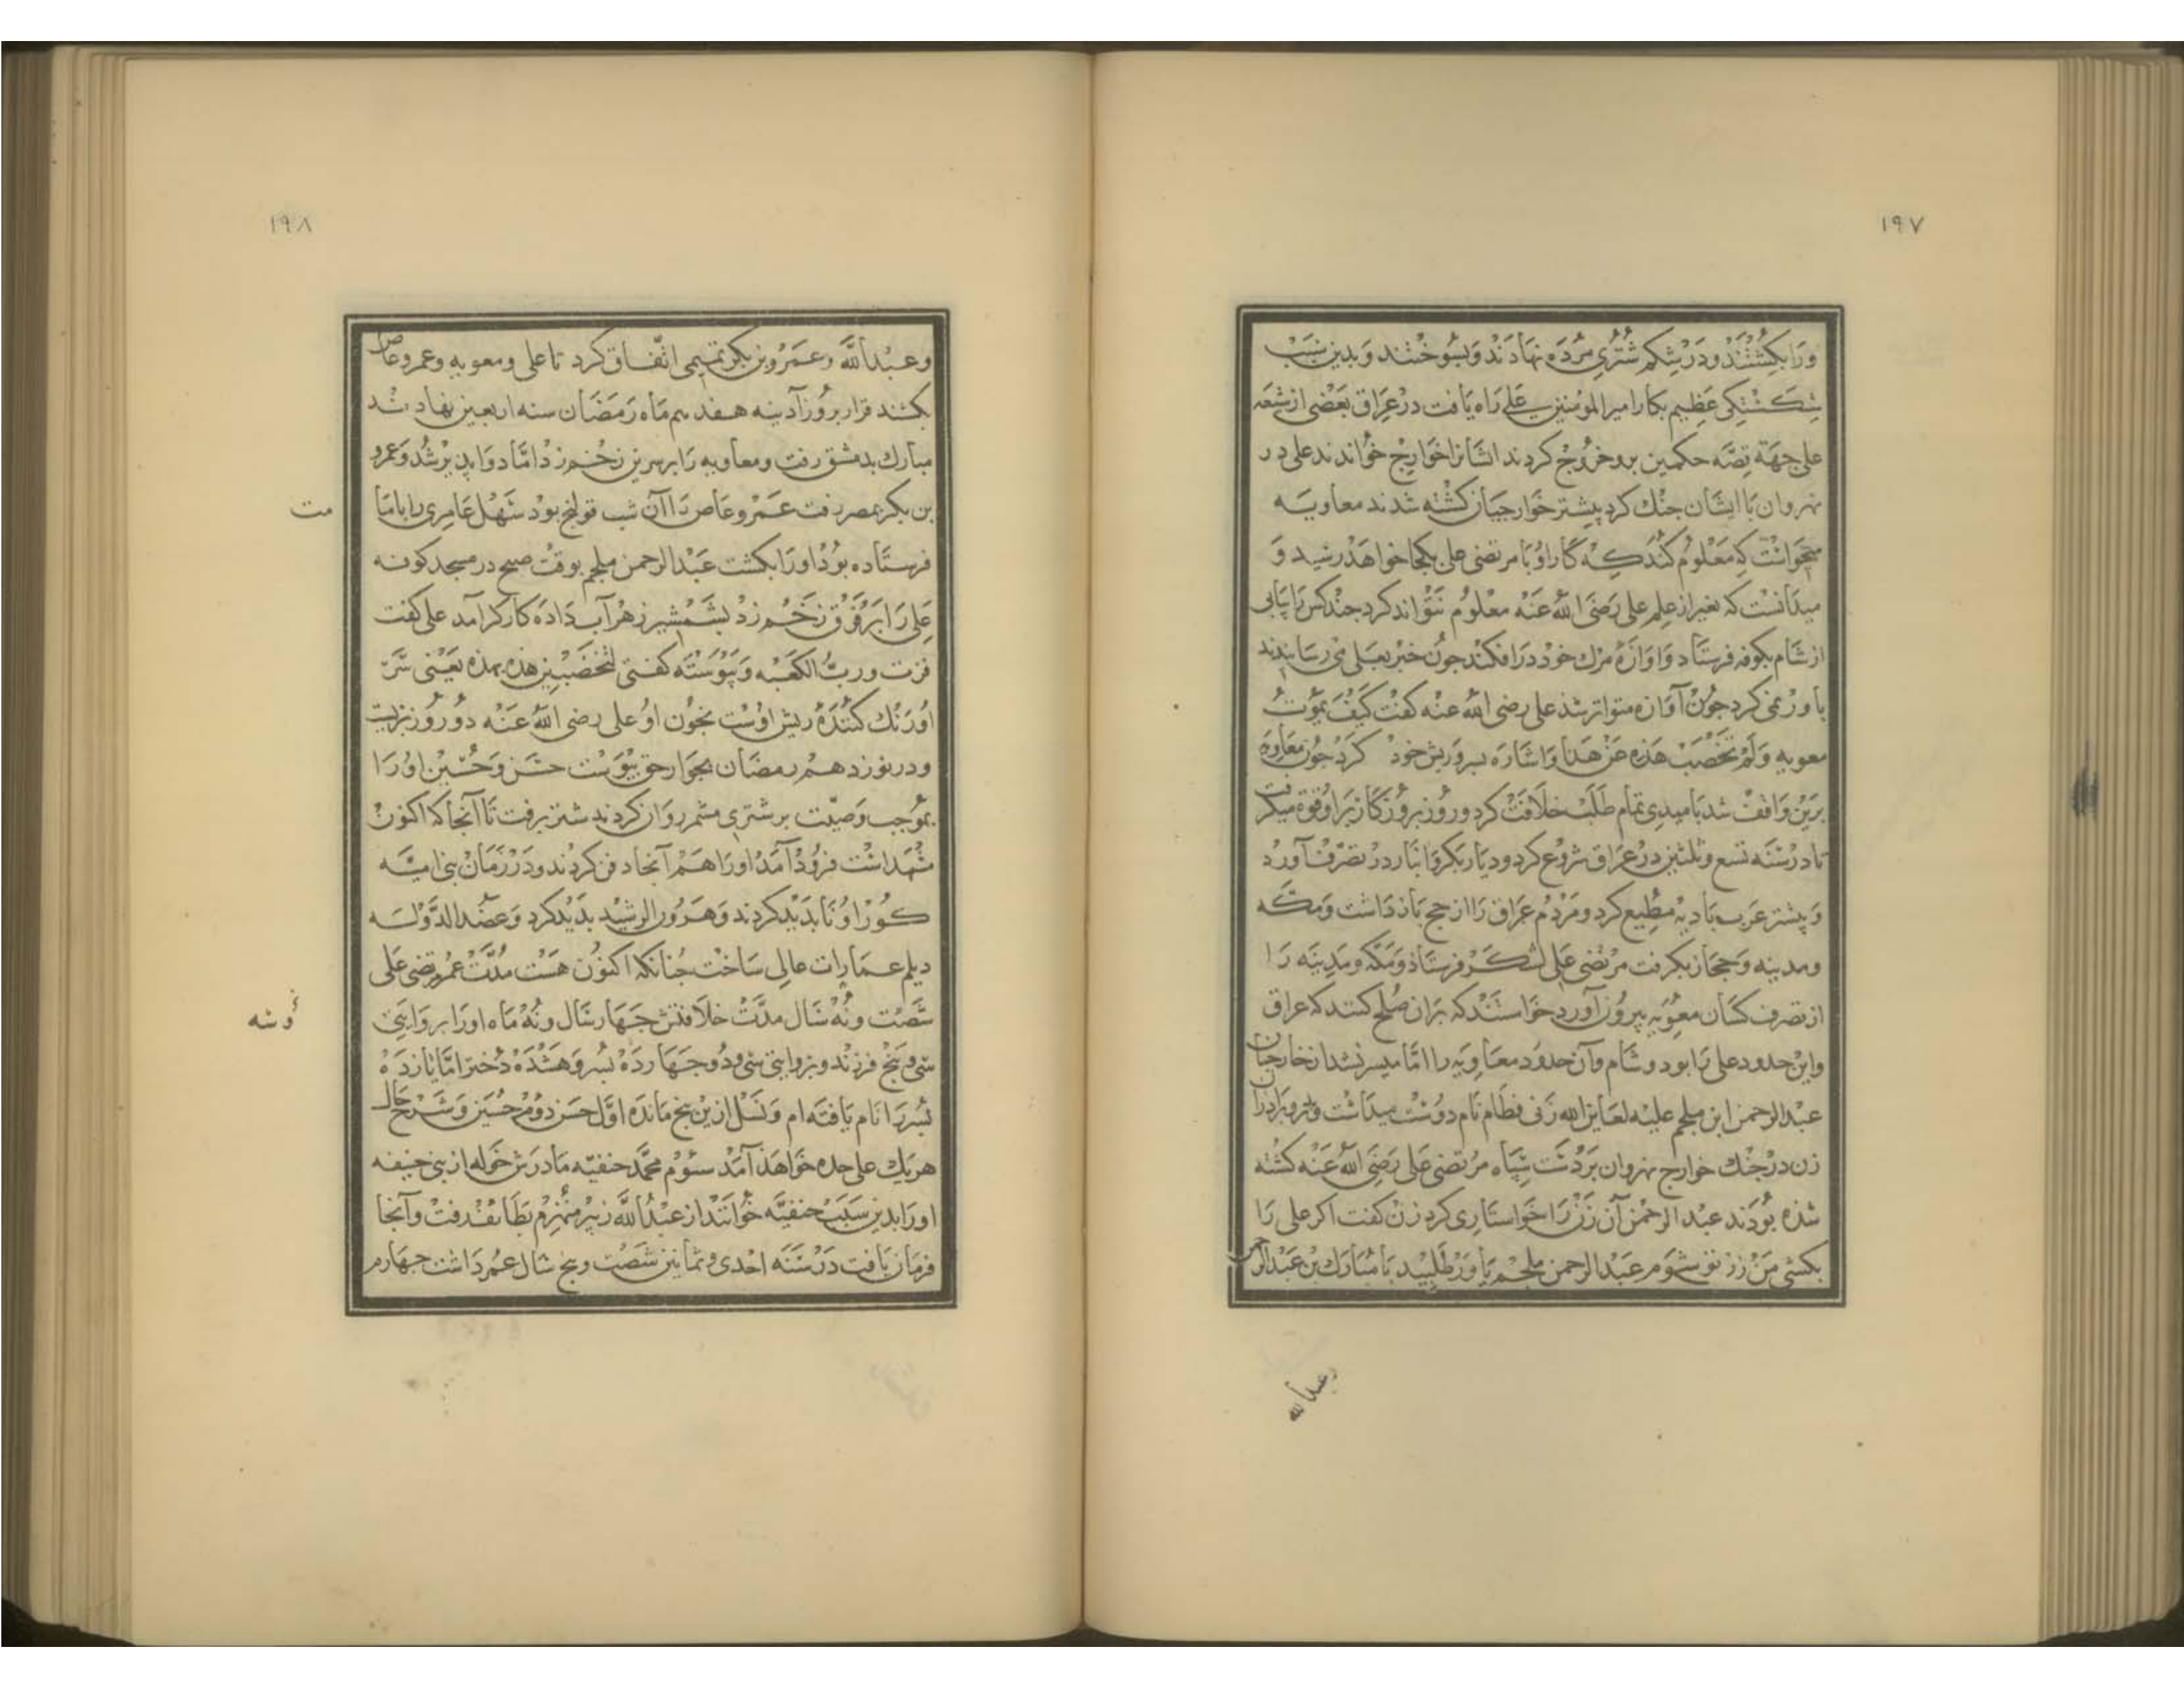 ۱۹۷
ورا بکشتند و در شکم شتری مرده نهادند و بسوختند و بدین سبب
شکستکی عظیم بکار امیرالمومنین علی راه یافت در عراق بعضی از شعه
علی جهة قصّه حکمین برو خروج کردند ایشانرا خوارج خواندند علی در
نهروان با ایشان جنك کرد پیشتر خوارجیان کشته شدند معاویه
میخوانست که معلوم کند که کار او با مرتضی علی بکجا خواهد رسید و
میدانست که بغیر از علم علی رضی الله عنه معلوم نتواند کرد جند کس را پیاپی
از شام بکوفه فرستاد و اوازهٔ مرك خود در افکند جون خبر بعلی می رسانیدند
باور نمی کرد جون آوازه متواتر شد علی رضی الله عنه کفت کیف یموت
معویه و لم تخضب هذه من هذا و اشاره بسر و ریش خود کرد جون معاویه
برین واقف شد بامیدی تمام طلب خلافت کرد و روز بروز کار برا و قوة میکرفت
تا در سنه تسع و ثلثین در عراق شروع کرد و دیار بکر و انبار در تصرّف آورد
و پیشتر عرب بادیه مطیع کرد و مردم عراق را از حج باز داشت و مکّه
و مدینه و حجاز بکرفت مرتضی علی لشکر فرستاد و مکّه و مدینه را
از تصرف کسان معویه بیرون آورد خواستند که بران صلح کنند که عراق
واین حدود علی را بود و شام وآن حدود معاویه را امّا میسر نشد از خارجیان
عبدالرحمن ابن ملجم علیه لعاین الله زنی قطام نام دوست میداشت و پدر و برادران
زن در جنك خوارج نهروان بر دست سپاه مرتضی علی رضی الله عنه کشته
شده بودند عبد الرحمن آن زن را خواستاری کرد زن کفت اکر علی را
بکشی من زن تو شوم عبدالرحمن ملجم یاور طلبید با مبارك بن عبدالرحمن
وعبدالله
۱۹۸
وعبدالله و عمرو بن بکر تمیمی اتّفاق کرد تا علی و معویه و عمرو عاص
بکشند قرار بروز آدینه هفدهم ماه رمضان سنه اربعین نهادند
مبارك بدمشق رفت و معاویه را بر سرین زخم زد امّا دوا پذیر شد و عمرو
بن بکر بمصر رفت عمرو عاص را آن شب قولنج بود سهل عامری را بامامت
فرستاده بود اورا بکشت عبدالرحمن ملجم بوقت صبح در مسجد کوفه
علی را بر فرق زخم زد بشمشیر زهر آب داده کارکر آمد علی کفت
فزت و ربّ الکعبه و پیوسته کفتی لتخضبین هذه بهذه یعنی سر
او رنك کننده ریش اوست بخون او علی رضی الله عنه دو روز بزیست
و در نوزدهم رمضان بجوار حق پیوست حسن و حسین اورا
بموجب وصیّت بر شتری مشمر روان کردند شتر برفت تا آنجا که اکنون
مشهد اشت فرود آمد اورا هم آنجا دفن کردند و در زمان بنی امیّه
کور او نا بدید کردند و هرون الرشید بدید کرد و عضد الدّوله
دیلم عمارات عالی ساخت جنانکه اکنون هست مدّت عمر مرتضی علی
شصت و نه سال مدّت خلافتش جهار سال و نه ماه اورا بروایتی
سی و پنج فرزند و بروایتی سی و دو جهارده بسر و هشده دختر امّا یازده
و سه
بسر را نام یافته ام و نسل ازین پنج مانده اوّل حسن دوم حسین و شرح حال
هریك علی حده خواهد آمد سوم محمّد حنفیّه مادرش خوله از بنی حنیفه
اورا بدین سبب حنفیّه خوانند از عبدالله زبیر منهزم بطائف رفت وآنجا
فرمان یافت در سنه احدی و ثمانین شصت و پنج سال عمر داشت جهارم